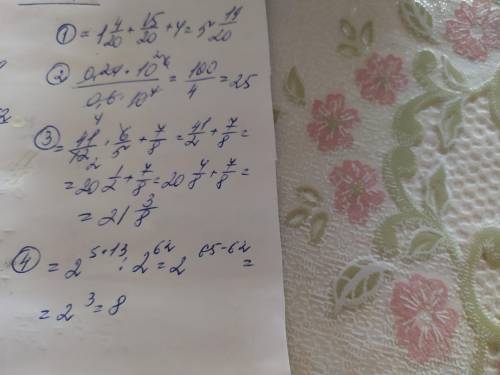 ① = 1 4/20 + 15/20 + 4 = 5 19/20
② 0,24 · 10 / 0,6 · 10⁴ = 100/4 = 25
③ = 41/12 · 6/5 + 7/8 = 41/2 + 7/8 =
= 20 1/2 + 7/8 = 20 4/8 + 7/8 =
= 21 3/8
④ = 2^5·13 : 2^62 = 2^65-62 =
= 2³ = 8